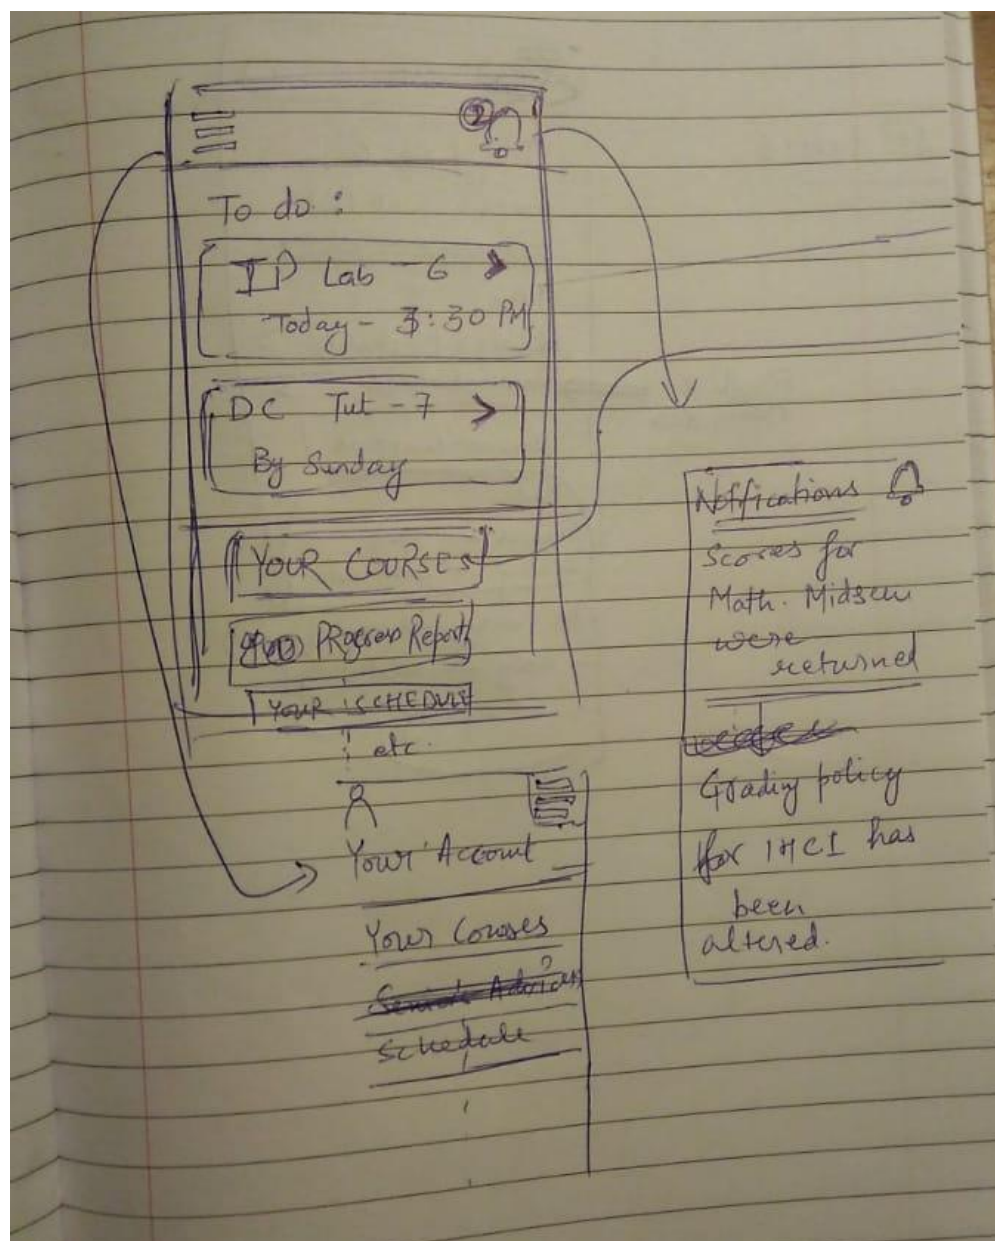 2
To do :
IP Lab - 6 >
Today - 3:30 PM
DC Tut - 7 >
By Sunday
YOUR COURSES
PRogress Report
YOUR SCHEDULE
etc.
Your Account
Your Courses
Schedule
Notifications
Scores for
Math. Midsem
were
returned
Grading policy
for IHCI has
been
altered.